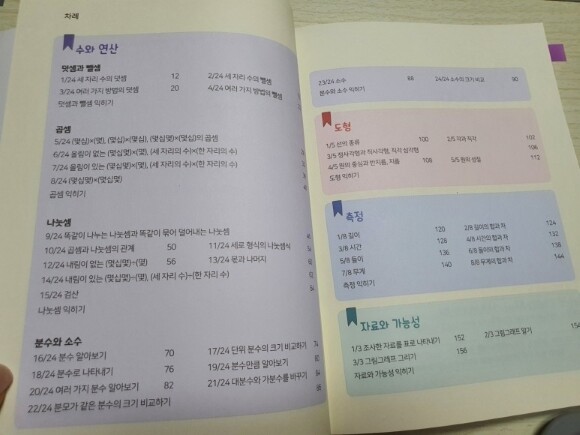 차례
수와 연산
덧셈과 뺄셈
1/24 세 자리 수의 덧셈 12 2/24 세 자리 수의 뺄셈
3/24 여러 가지 방법의 덧셈 20 4/24 여러 가지 방법의 뺄셈
덧셈과 뺄셈 익히기
곱셈
5/24 (몇십)×(몇), (몇십)×(몇십), (몇십몇)×(몇십)의 곱셈
6/24 올림이 없는 (몇십몇)×(몇), (세 자리의 수)×(한 자리의 수)
7/24 올림이 있는 (몇십몇)×(몇), (세 자리의 수)×(한 자리의 수)
8/24 (몇십몇)×(몇십몇)
곱셈 익히기
나눗셈
9/24 똑같이 나누는 나눗셈과 똑같이 묶어 덜어내는 나눗셈
10/24 곱셈과 나눗셈의 관계 50 11/24 세로 형식의 나눗셈식
12/24 내림이 없는 (몇십몇)÷(몇) 56 13/24 몫과 나머지
14/24 내림이 있는 (몇십몇)÷(몇), (세 자리 수)÷(한 자리 수)
15/24 검산
나눗셈 익히기
분수와 소수
16/24 분수 알아보기 70 17/24 단위 분수의 크기 비교하기 74
18/24 분수로 나타내기 76 19/24 분수만큼 알아보기
20/24 여러 가지 분수 알아보기 82 21/24 대분수와 가분수를 바꾸기
22/24 분모가 같은 분수의 크기 비교하기
23/24 소수 88 24/24 소수의 크기 비교 90
분수와 소수 익히기
도형
1/5 선의 종류 100 2/5 각과 직각
3/5 정사각형과 직사각형, 직각 삼각형
4/5 원의 중심과 반지름, 지름 108 5/5 원의 성질 112
도형 익히기
측정
1/8 길이 120 2/8 길이의 합과 차 124
3/8 시간 128 4/8 시간의 합과 차 132
5/8 들이 136 6/8 들이의 합과 차 138
7/8 무게 140 8/8 무게의 합과 차 144
측정 익히기
자료와 가능성
1/3 조사한 자료를 표로 나타내기 152 2/3 그림그래프 알기 154
3/3 그림그래프 그리기 156
자료와 가능성 익히기